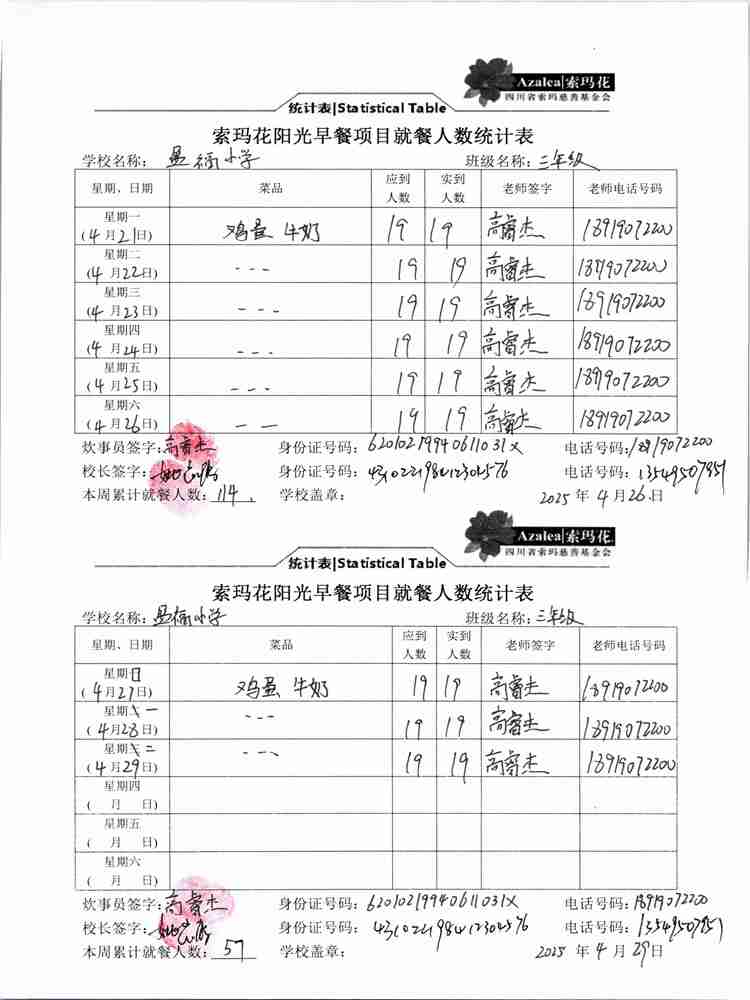 Azalea|索玛花
四川省索玛慈善基金会
统计表|Statistical Table
索玛花阳光早餐项目就餐人数统计表
学校名称： 小学 班级名称：三年级
星期、日期 菜品 应到人数 实到人数 老师签字 老师电话号码
星期一 (4月21日) 鸡蛋 牛奶 19 19 高睿杰 18919072200
星期二 (4月22日) --- 19 19 高睿杰 18919072200
星期三 (4月23日) --- 19 19 高睿杰 18919072200
星期四 (4月24日) --- 19 19 高睿杰 18919072200
星期五 (4月25日) --- 19 19 高睿杰 18919072200
星期六 (4月26日) -- 19 19 高睿杰 18919072200
炊事员签字：高睿杰 身份证号码：62010219940611031X 电话号码：18919072200
校长签字： 身份证号码： 电话号码：13549507951
本周累计就餐人数：114. 学校盖章： 2025年4月26日
Azalea|索玛花
四川省索玛慈善基金会
统计表|Statistical Table
索玛花阳光早餐项目就餐人数统计表
学校名称： 小学 班级名称：三年级
星期、日期 菜品 应到人数 实到人数 老师签字 老师电话号码
星期日 (4月27日) 鸡蛋 牛奶 19 19 高睿杰 18919072200
星期一 (4月28日) --- 19 19 高睿杰 18919072200
星期二 (4月29日) --- 19 19 高睿杰 18919072200
星期四 ( 月 日)
星期五 ( 月 日)
星期六 ( 月 日)
炊事员签字：高睿杰 身份证号码：62010219940611031X 电话号码：18919072200
校长签字： 身份证号码： 电话号码：13549507951
本周累计就餐人数：57 学校盖章： 2025年4月29日